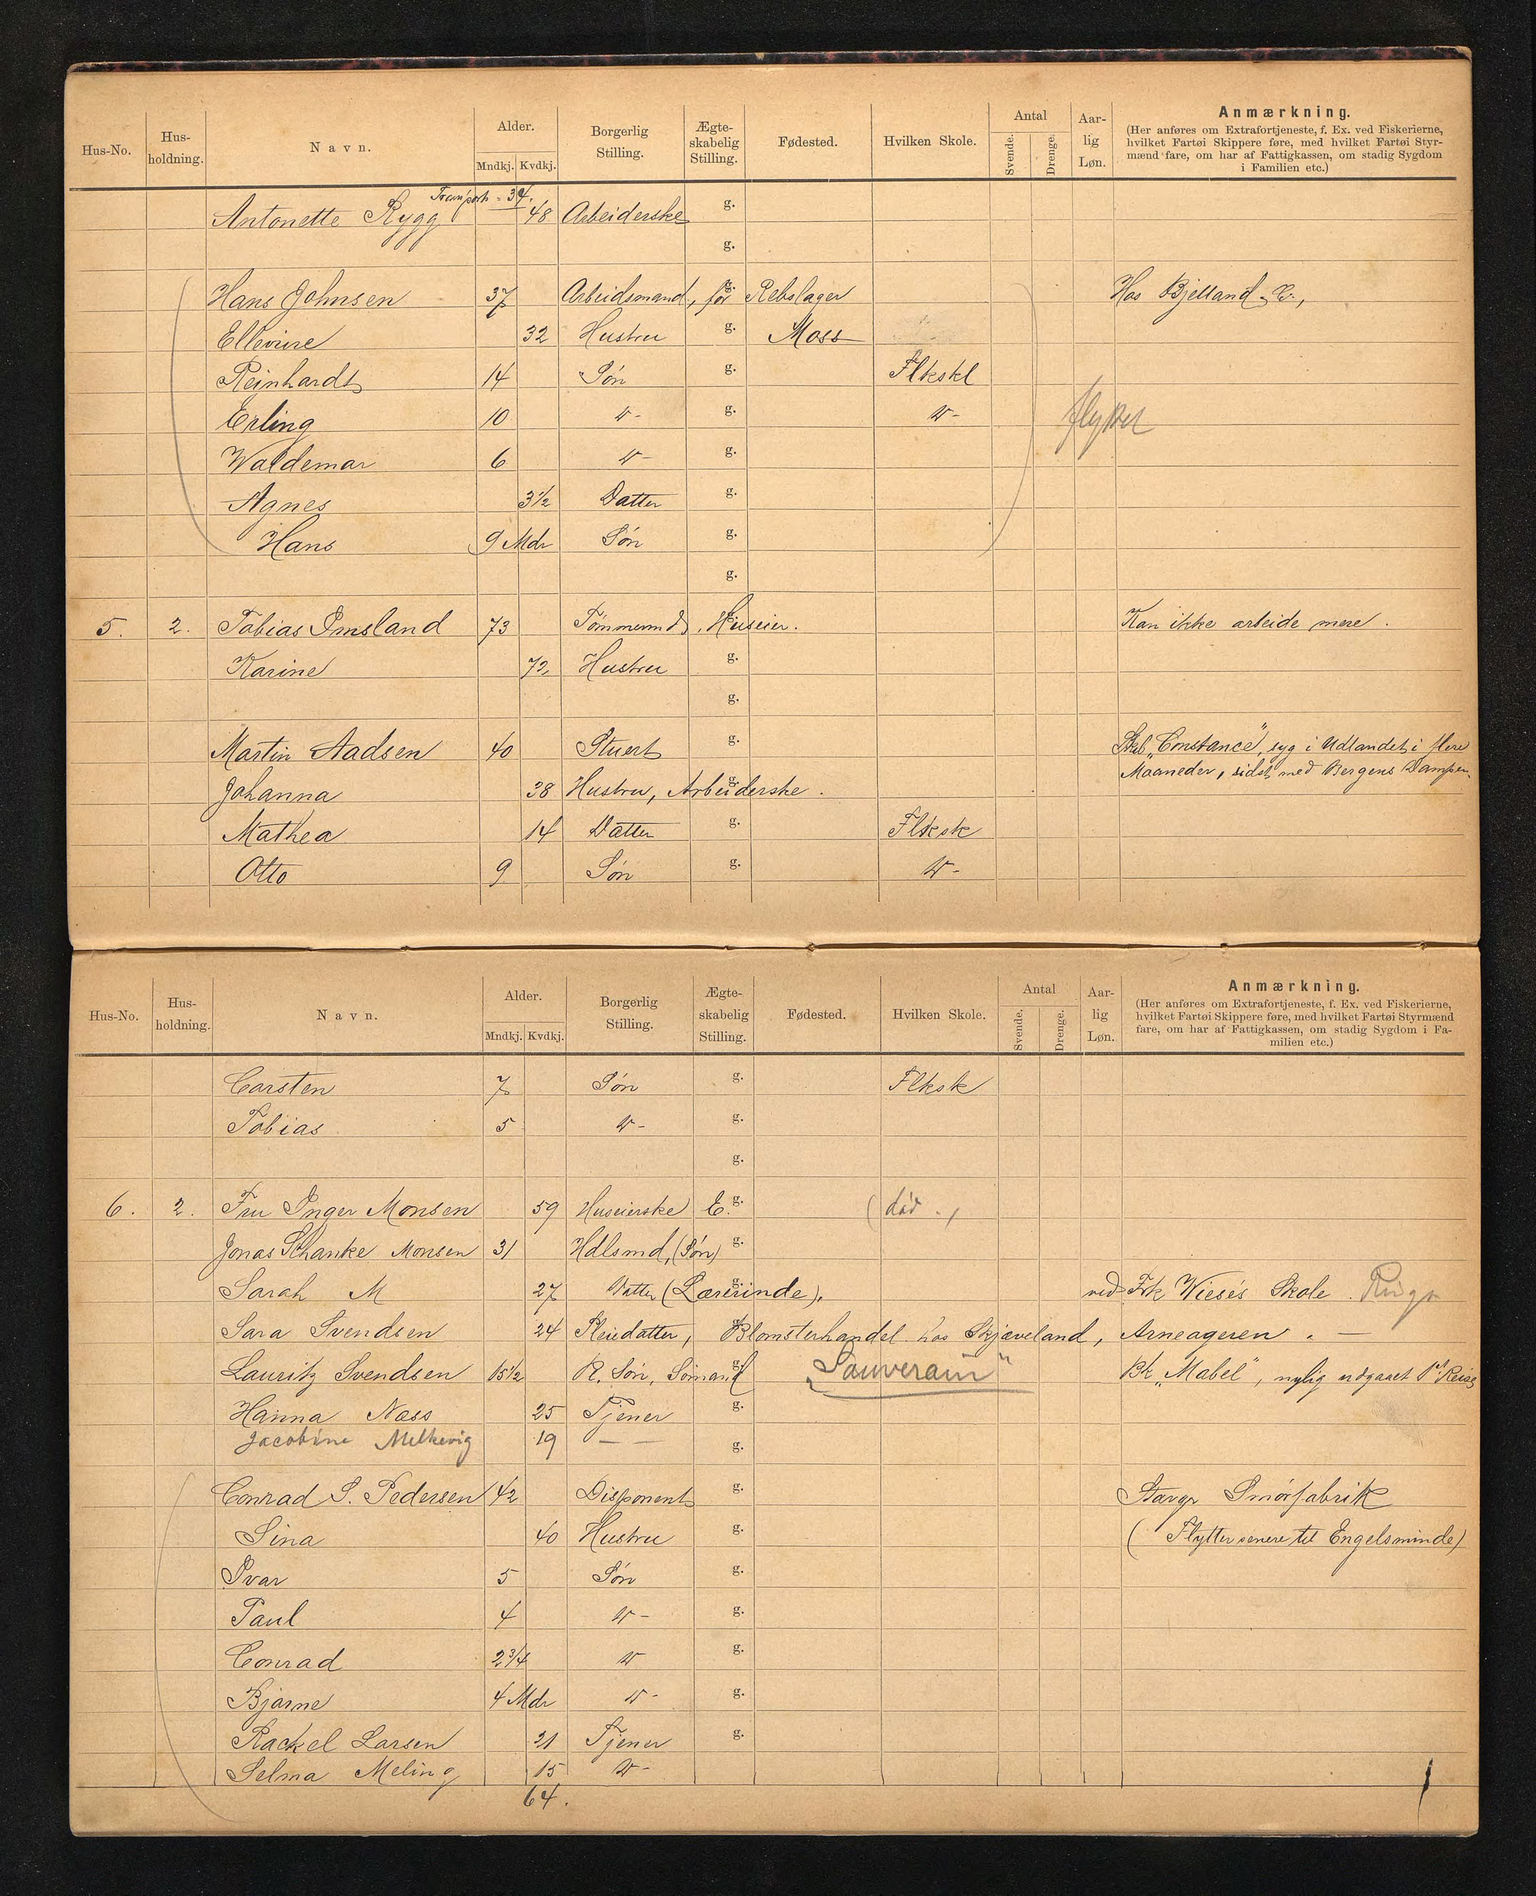 Hus-No. Hus-holdning. Navn. Alder. Mndkj. Kvdkj. Borgerlig Stilling. Ægte-skabelig Stilling. Fødested. Hvilken Skole. Antal Svende. Drenge. Aar-lig Løn. Anmærkning.
(Her anføres om Extrafortjeneste, f. Ex. ved Fiskerierne,
hvilket Fartøi Skippere føre, med hvilket Fartøi Styr-
mænd fare, om har af Fattigkassen, om stadig Sygdom
i Familien etc.)
Transport = 34.
Antonette Rygg 48 Arbeiderske g.
g.
Hans Johnsen 37 Arbeidsmand, før Rebslager g. Hos Bjelland & C.,
Ellevine 32 Hustru g. Moss
Reinhardt 14 Søn g. Flkskl
Erling 10 " - g. " - flyttet
Waldemar 6 " - g.
Agnes 3 1/2 Datter g.
Hans 9 Mdr Søn g.
g.
5. 2. Tobias Imsland 73 Tømmermd, Huseier. g. Kan ikke arbeide mere.
Karine 72, Hustru g.
g.
Martin Aadsen 40 Stuert g. Skib „Constance", syg i Udlandet i flere
Maaneder, sidst med Bergens Damper.
Johanna 38 Hustru, Arbeiderske. g.
Mathea 14 Datter g. Flksk
Otto 9 Søn g. " -
Hus-No. Hus-holdning. Navn. Alder. Mndkj. Kvdkj. Borgerlig Stilling. Ægte-skabelig Stilling. Fødested. Hvilken Skole. Antal Svende. Drenge. Aar-lig Løn. Anmærkning.
(Her anføres om Extrafortjeneste, f. Ex. ved Fiskerierne,
hvilket Fartøi Skippere føre, med hvilket Fartøi Styrmænd
fare, om har af Fattigkassen, om stadig Sygdom i Fa-
milien etc.)
Carsten 7 Søn g. Flksk
Tobias 5 " - g.
g.
6. 2. Fru Inger Monsen 59 Huseierske E. g. (død.)
Jonas Schanke Monsen 31 Hdlsmd, (Søn) g.
Sarah M 27 Datter (Lærerinde). g. ved Frk Wiese's Skole.
Sara Svendsen 24 Pleiedatter, Blomsterhandel hos Skjæveland, Arneageren. — g.
Lauritz Svendsen 15 1/2 P. Søn, Sømand g. „Souverain" Bk „Mabel", nylig udgaaet 1st Reise
Hanna Næss 25 Tjener g.
Jacobine Melkevig 19 — — g.
Conrad S. Pedersen 42 Disponent g. Stavgr Smørfabrik
Sina 40 Hustru g. (Flytter senere til Engelsminde)
Ivar 5 Søn g.
Paul 4 " - g.
Conrad 2 3/4 " g.
Bjarne 4 Mdr " - g.
Rackel Larsen 21 Tjener g.
Selma Meling 15 " -
64.